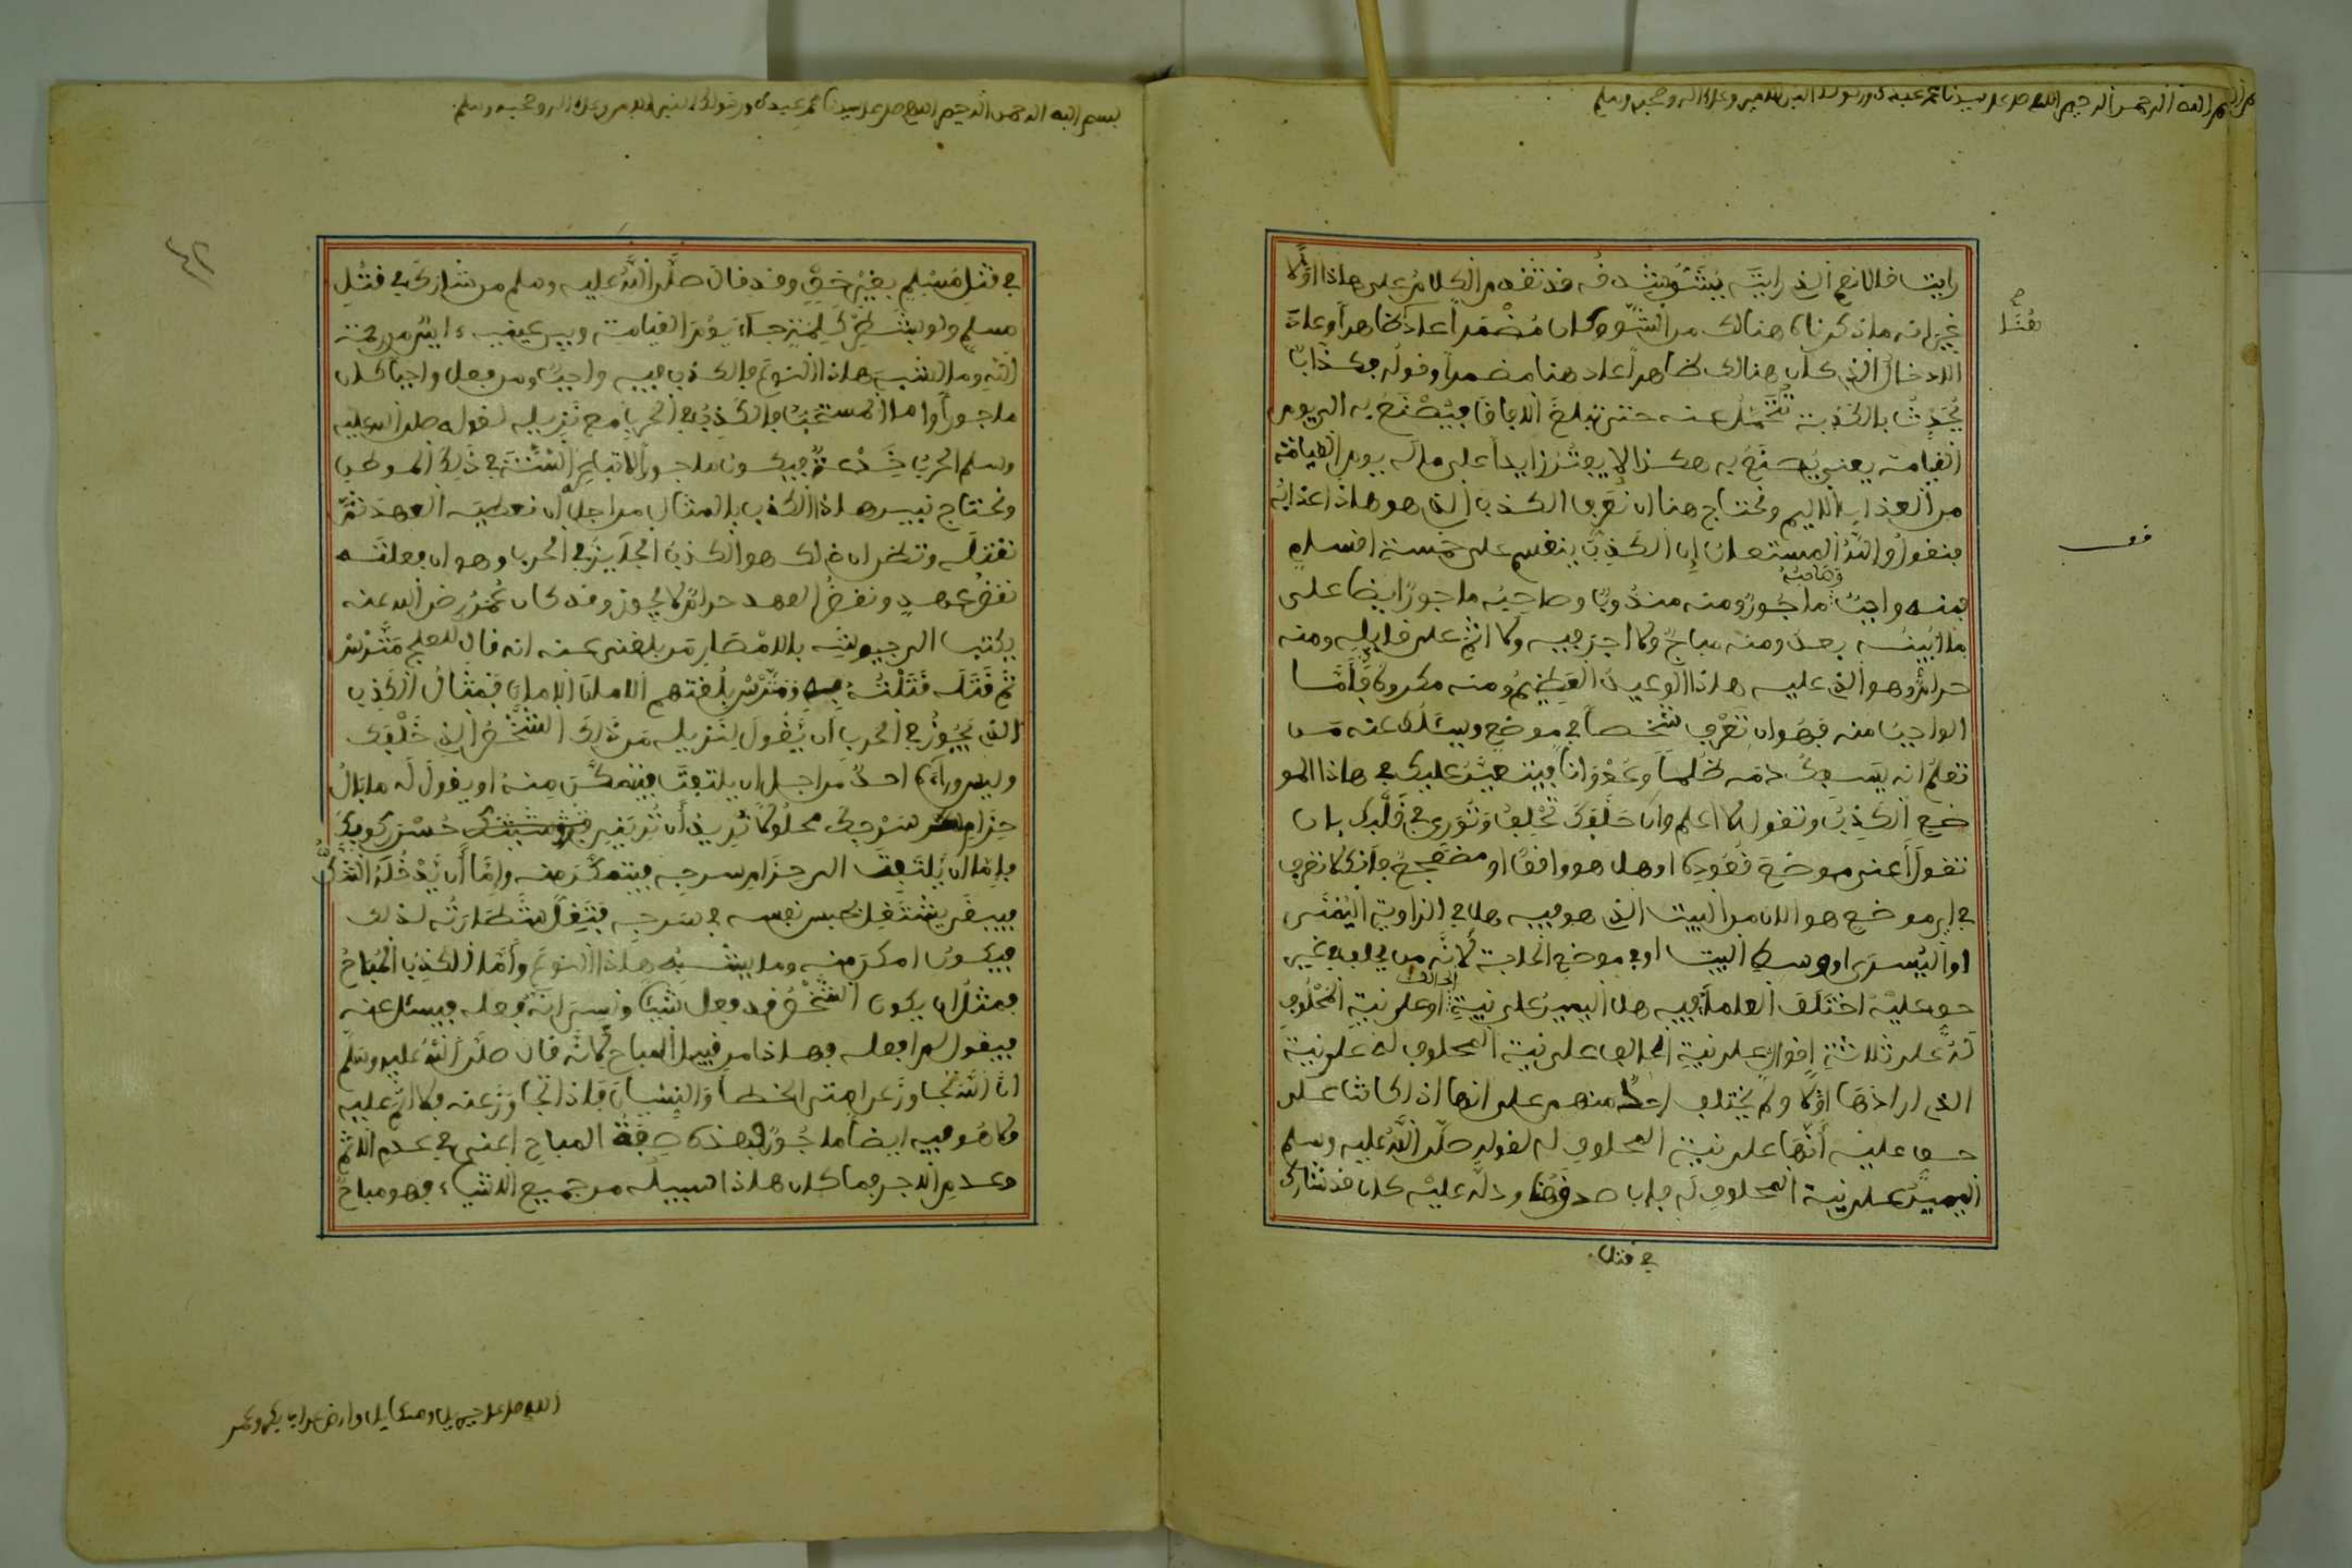 بسم الله الرحمن الرحيم اللهم صل على سيدنا محمد عبدك ورسولك النبي الامي وعلى اله وصحبه وسلم
رايت قال انه الذي رايته يُشَقُّ شدقه قد تقدم الكلام على هاذا اوّلا
غير انه ماذكرناه هنالك من الشق وكان مُضْمَراً عاد ظاهراً وعادة
الادخال الذي كان هنالك ظاهراً عاد هنا مضمراً وقوله فكذاب
يُحَدِّث بالكذبة تُحْمَل عنه حتى تبلغ الافاق فيُصْنَع به الى يوم
القيامة يعني يُصنع به هكذا لا يفتر ابدا على ماله يوم القيامة
من العذاب الاليم ونحتاج هنا ان نعرف الكذب الذي هو هاذا عذابه
فنقول والله المستعان ان الكذب ينقسم على خمسة اقسام
فمنه واجب وصاحبه ماجور ومنه مندوب وصاحبه ماجور ايضا على
ما ابينه بعد ومنه مباح ولا اجر فيه ولا اثم على قايله ومنه
حرام وهو الذي عليه هاذا الوعيد العظيم ومنه مكروه فأما
الواجب منه فهو ان تعرف شخصا في موضع ويسئلك عنه من
تعلم انه يسفك دمه ظلما وعدوانا فيتعين عليك في هاذا المو
ضع الكذب وتقول لا اعلم وان حلفك تحلف وتوري في قلبك بان
تقول أعني موضع قعوده او هل هو واقف او مضطجع فانك لا تعرف
في اي موضع هو الان من البيت الذي هو فيه هل في الزاوية اليمنى
او اليسرى او وسط البيت او في موضع الخلوة لانه من يحلف في غير
حق عليه اختلف العلماء فيه هل اليمين على نية الحالف او على نية المحلوف
له على ثلاثة اقوال على نية الحالف على نية المحلوف له على نية
الذي ارادها اوّلا ولم يختلف احد منهم على انها اذا كانت على
حق عليه أنها على نية المحلوف له لقوله صلى الله عليه وسلم
اليمين على نية المحلوف له فان صدقه ودله عليه كان قد شارك
في قتل
قف
بسم الله الرحمن الرحيم اللهم صل على سيدنا محمد عبدك ورسولك النبي الامي وعلى اله وصحبه وسلم
في قتل مسلم بغير حق وقد قال صلى الله عليه وسلم من شارك في قتل
مسلم ولو بشطر كلمة جاء يوم القيامة وبين عينيه ءايس من رحمة
الله وما اشبه هاذا النوع فالكذب فيه واجب ومن فعل واجبا كان
ماجوراً واما المستحب فالكذب في الحرب مع نزيله لقوله صلى الله عليه
وسلم الحرب خدعة فيكون ماجورا لاتباع السنة في ذلك الموطن
ونحتاج نبين هاذا الكذب بالمثال من اجل ان نعطيه العهد ثم
نقتله ونظن ان ذلك هو الكذب الجائز في الحرب وهو ان فعلته
نقض عهد ونقض العهد حرام لا يجوز وقد كان عُمَر رضي الله عنه
يكتب الى جيوشه بالامصار من بلغني عنه انه قال للعلج مَتَرْس
ثم قتله قتلته به ومترس بلغتهم الامان الامان فمثال الكذب
الذي يجوز في الحرب ان يقول لنزيله من ذلك الشخص الذي خلفك
وليس وراءه احد من اجل ان يلتفت فيتمكن منه او يقول له ما بال
حزام سرجك محلولا تريد ان حسن ركوبك
فاما ان يلتفت الى حزام سرجه فيتمكن منه وإما أن يدخله الشك
فيبقى يشتغل بحبس نفسه في سرجه فتقل شطارته لذلك
فيكون امكن منه وما يشبه هاذا النوع وأما الكذب المباح
فمثل ان يكون الشخص قد فعل شيئا ونسي انه فعله فيسئل عنه
فيقول لم افعله فهاذا من قبيل المباح لانه قال صلى الله عليه وسلم
ان الله تجاوز عن امتي الخطأ والنسيان فاذا تجاوز عنه فلا اثم عليه
ولا هو فيه ايضا ماجور فهذه صفة المباح اعني في عدم الاثم
وعدم الاجر فما كان هاذا سبيله من جميع الاشياء فهو مباح
اللهم صل على جبريل وميكايل وارض عن ابي بكر وعمر